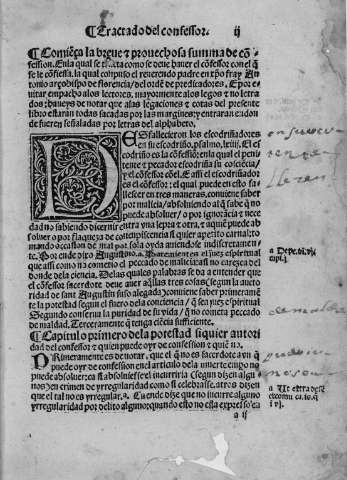 Tractado del confessor. ij
¶ Comiẽça la breue τ prouechosa summa de cõ-
fession. En la qual se trata como se deue hauer el cõfessor con el q̃
se le cõfiessa. la qual compuso el reuerendo padre en xp̃o fray An
tonio arçobispo de florencia/del ordẽ de predicadores. E por e-
uitar empacho alos lectores, mayormente alos legos τ no letra
dos: haueys de notar que alas legaciones τ cotas del presente
libro estaran todas sacadas por las margines: y entraran endon
de fueren señaladas por letras del alphabeto.
DEsfallecieron los escodriñadores
en su escodriño, psalmo, lxiij. El es
codriño es la cõfessiõ: en la qual el peni
tente τ pecador escodriña su cõsciẽcia/
y el cõfessor cõel. E assi el escodriñador
es el cõfessor: el qual puede en esto fa
llescer en tres maneras, conuiene saber
por malicia/absoluiendo al q̃ sabe q̃ no
puede absoluer/ o por ignorãcia τ nece
dad no sabiendo dicernir entra vna lepra τ otra, τ aquiẽ puede ab
soluer o por flaqueza de concupiscencia si quier apetito carnal to
mando occasion de mal por sola oyda auiendose indiscretamen-
te. Por ende dixo Augustino. a. Paren mientes el juez espiritual
que assi como no cometio el peccado de malicia: assi no carezca del
donde dela ciencia. Delas quales palabras se da a entender que
el cõfessor sacerdote deue auer aq̃llas tres cosas (segun la aucto
ridad de sant Augustin suso alegada) conuiene saber primeramẽ
te la potestad segun el fuero dela conciencia/ q̃ sea juez espiritual
Segundo conserua la puridad de su vida/ q̃ no cometa peccado
de maldad. Terceramente q̃ tenga ciẽcia sufficiente.
¶ Capitulo primero dela potestad si quier autori
dad del confessor τ quien puede oyr de confession τ quiẽ no.
PRimeramente es de notar, que el q̃ no es sacerdote avn q̃
puede oyr de confession enel articulo dela muerte empo no
puede absoluer: ca si absoluiesse el incurriria (segun dizen algu-
nos) en crimen de yrregularidad como si celebrasse. otros dizen
que el tal no es yrregular. a. Ca ende dize que no incurre alguno
yrregularidad por delito alguno: quando esto no esta expressо ẽa
a ij
a De pe. di. vj.
cap. j.
a Ut extra de sẽ